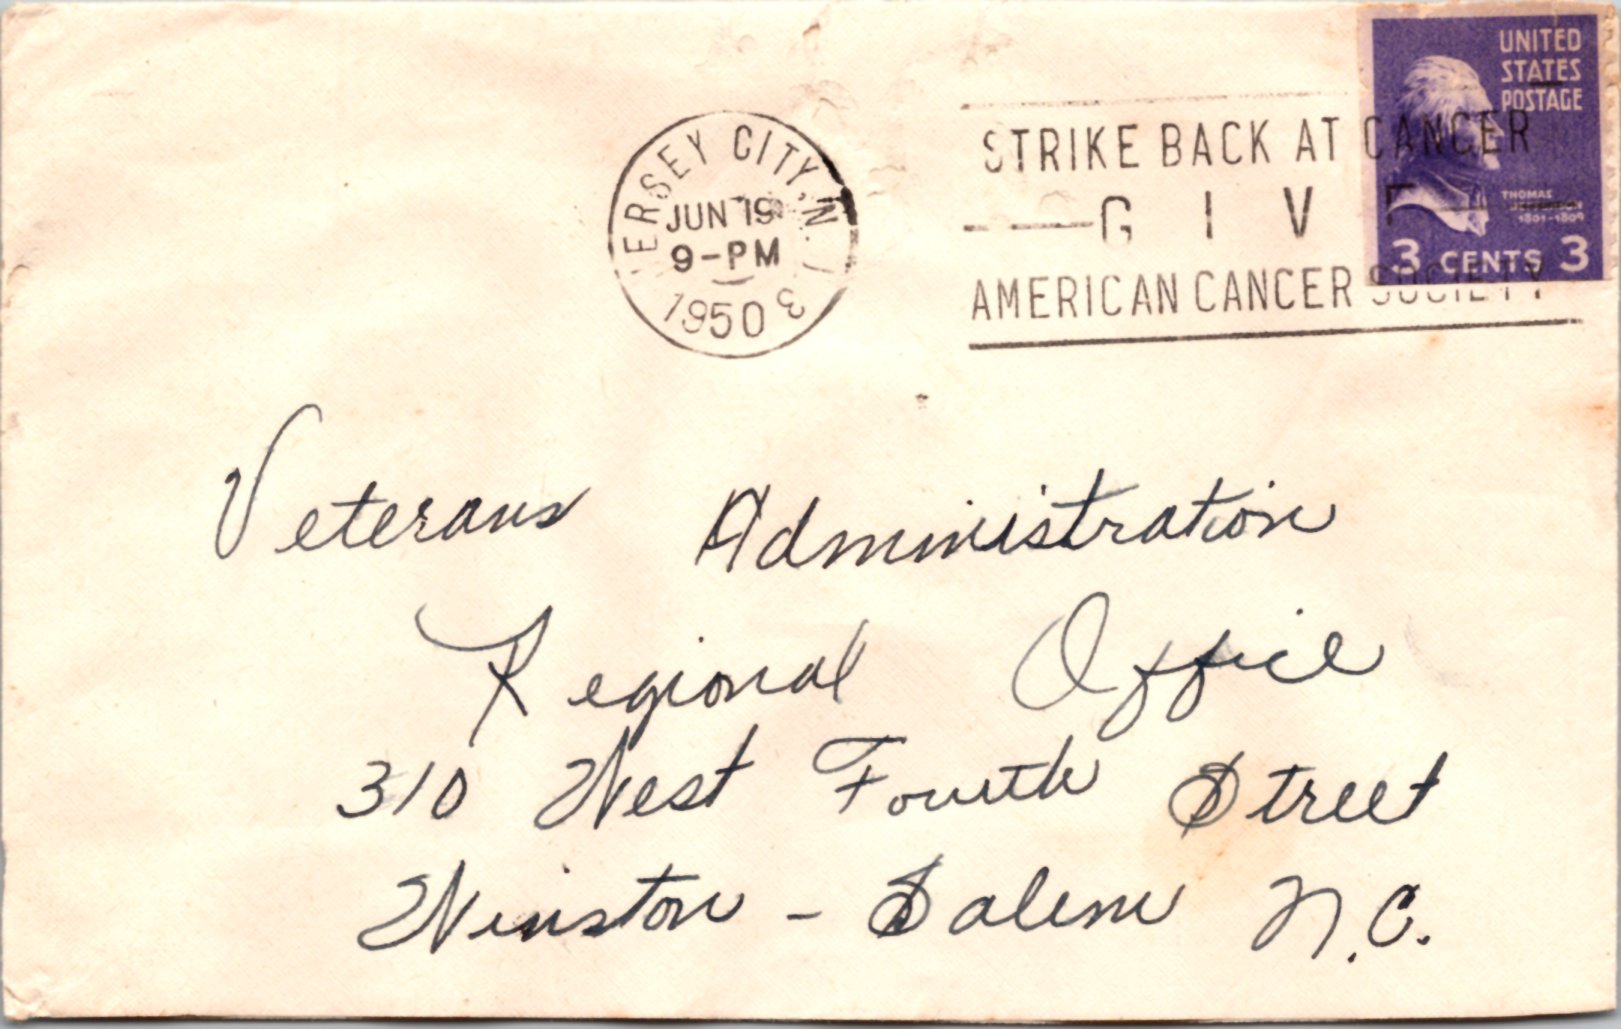 UNITED
STATES
POSTAGE
THOMAS
1801-1809
3 CENTS 3
JERSEY CITY, N. J.
JUN 19
9-PM
1950
STRIKE BACK AT CANCER
GIVE
AMERICAN CANCER SOCIETY
Veterans Administration
Regional Office
310 West Fourth Street
Winston-Salem N.C.